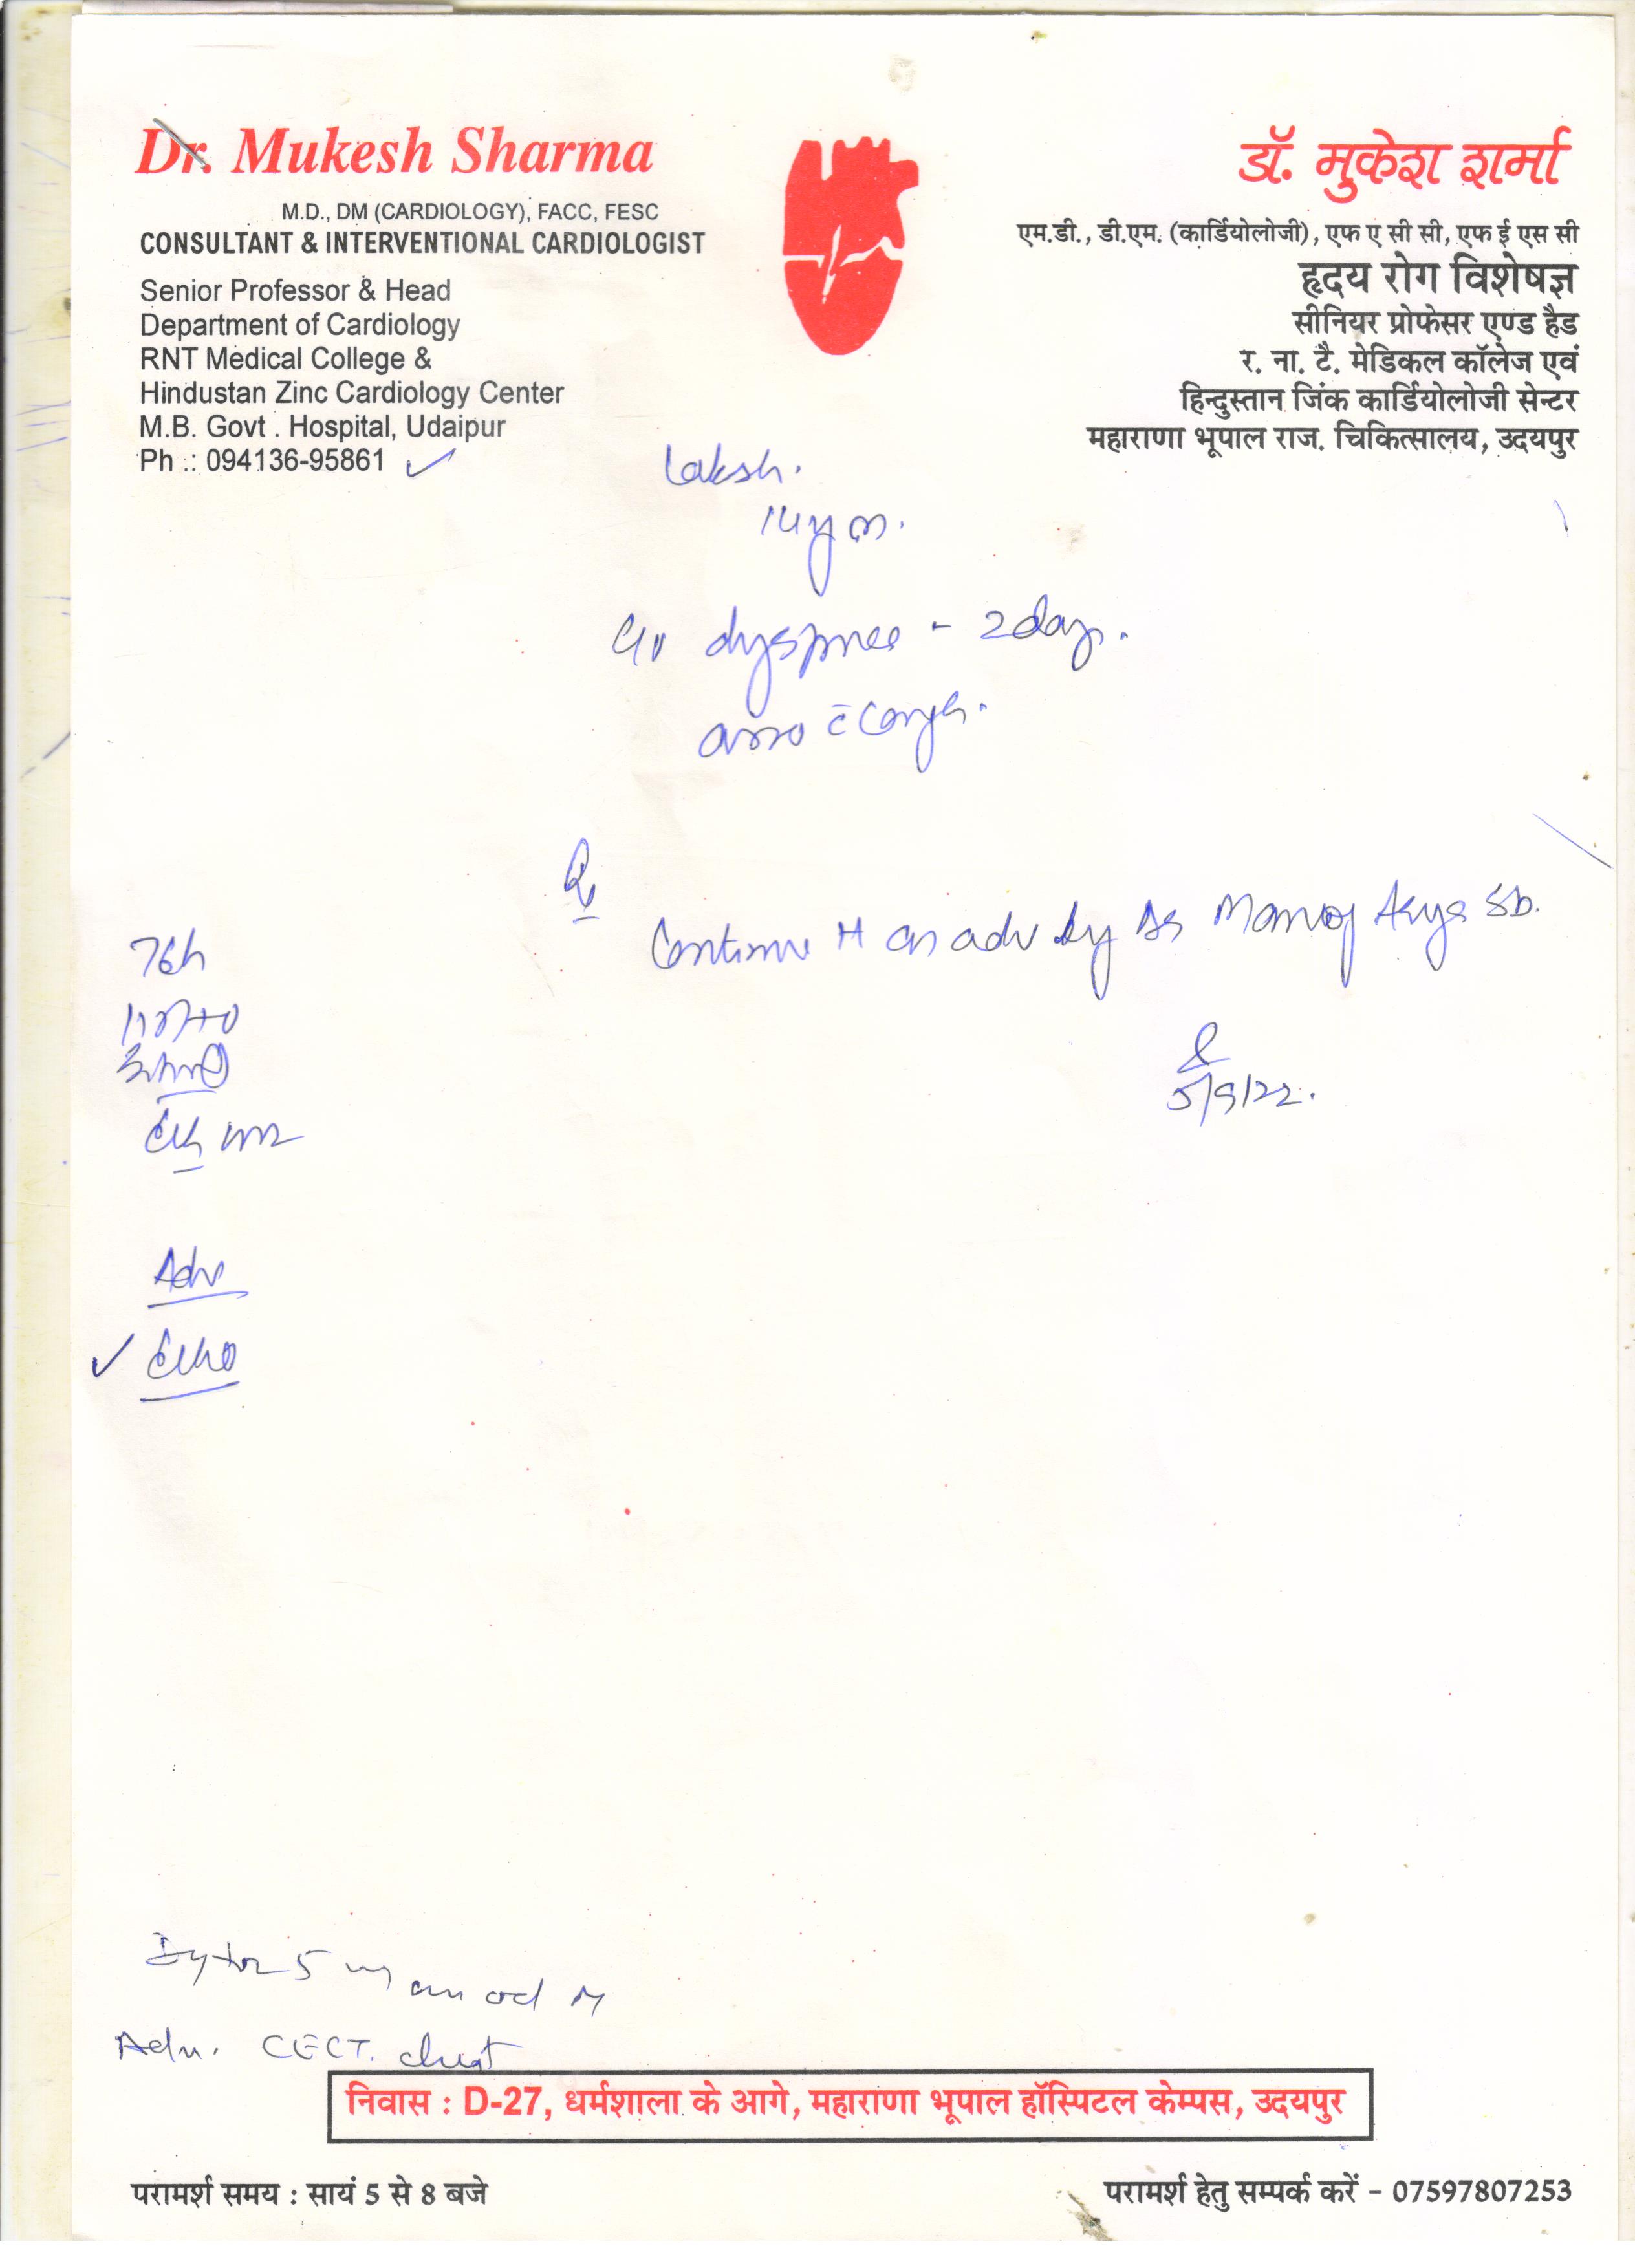 Dr. Mukesh Sharma
M.D., DM (CARDIOLOGY), FACC, FESC
CONSULTANT & INTERVENTIONAL CARDIOLOGIST
Senior Professor & Head
Department of Cardiology
RNT Medical College &
Hindustan Zinc Cardiology Center
M.B. Govt . Hospital, Udaipur
Ph .: 094136-95861
डॉ. मुकेश शर्मा
एम.डी., डी.एम. (कार्डियोलोजी), एफ ए सी सी, एफ ई एस सी
हृदय रोग विशेषज्ञ
सीनियर प्रोफेसर एण्ड हैड
र. ना. टै. मेडिकल कॉलेज एवं
हिन्दुस्तान जिंक कार्डियोलोजी सेन्टर
महाराणा भूपाल राज. चिकित्सालय, उदयपुर
Laksh.
14y m.
dyspnea - 2 day.
c̄ cough.
Rx
Continue as adv by Dr Manoj Arya Sb.
5/9/22.
Adv
✓ Echo
Dytor 5 mg od
Adv. CECT. chest
निवास : D-27, धर्मशाला के आगे, महाराणा भूपाल हॉस्पिटल केम्पस, उदयपुर
परामर्श समय : सायं 5 से 8 बजे
परामर्श हेतु सम्पर्क करें – 07597807253